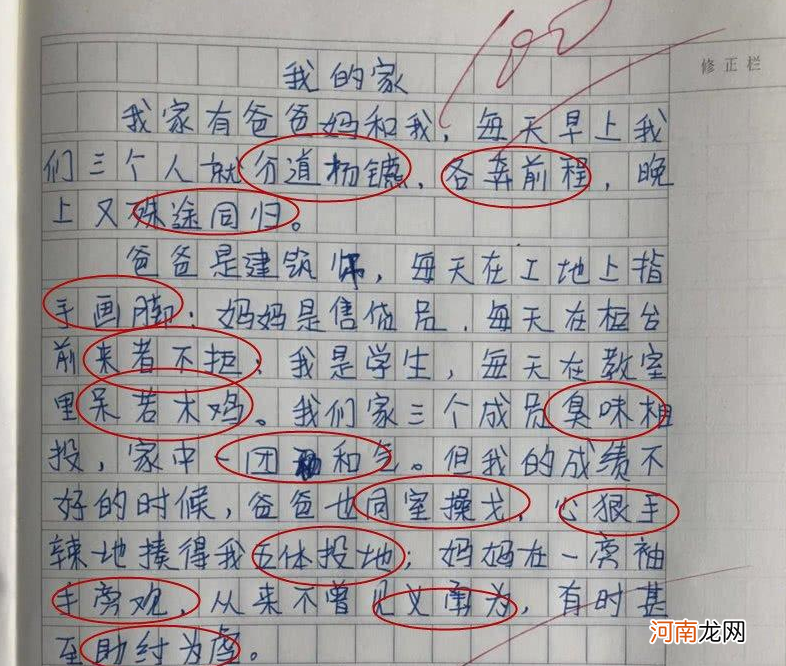 100
修正栏
我的家
我家有爸爸妈和我，每天早上我
们三个人就分道杨镳，各奔前程，晚
上又殊途同归。
爸爸是建筑师，每天在工地上指
手画脚；妈妈是售货员，每天在柜台
前来者不拒；我是学生，每天在教室
里呆若木鸡。我们家三个成员臭味相
投，家中一团和气。但我的成绩不
好的时候，爸爸也同室操戈，心狠手
辣地揍得我五体投地；妈妈在一旁袖
手旁观，从来不曾见义勇为，有时甚
至助纣为虐。
河南龙网